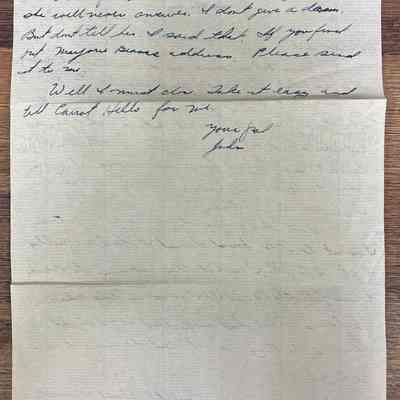 she will never answer. I don't give a damn.
But don't tell her I said that. If you find
out address. Please send
it to me.
Well I must close. Take it easy and
tell Carrol Hello for me.
Your pal
John